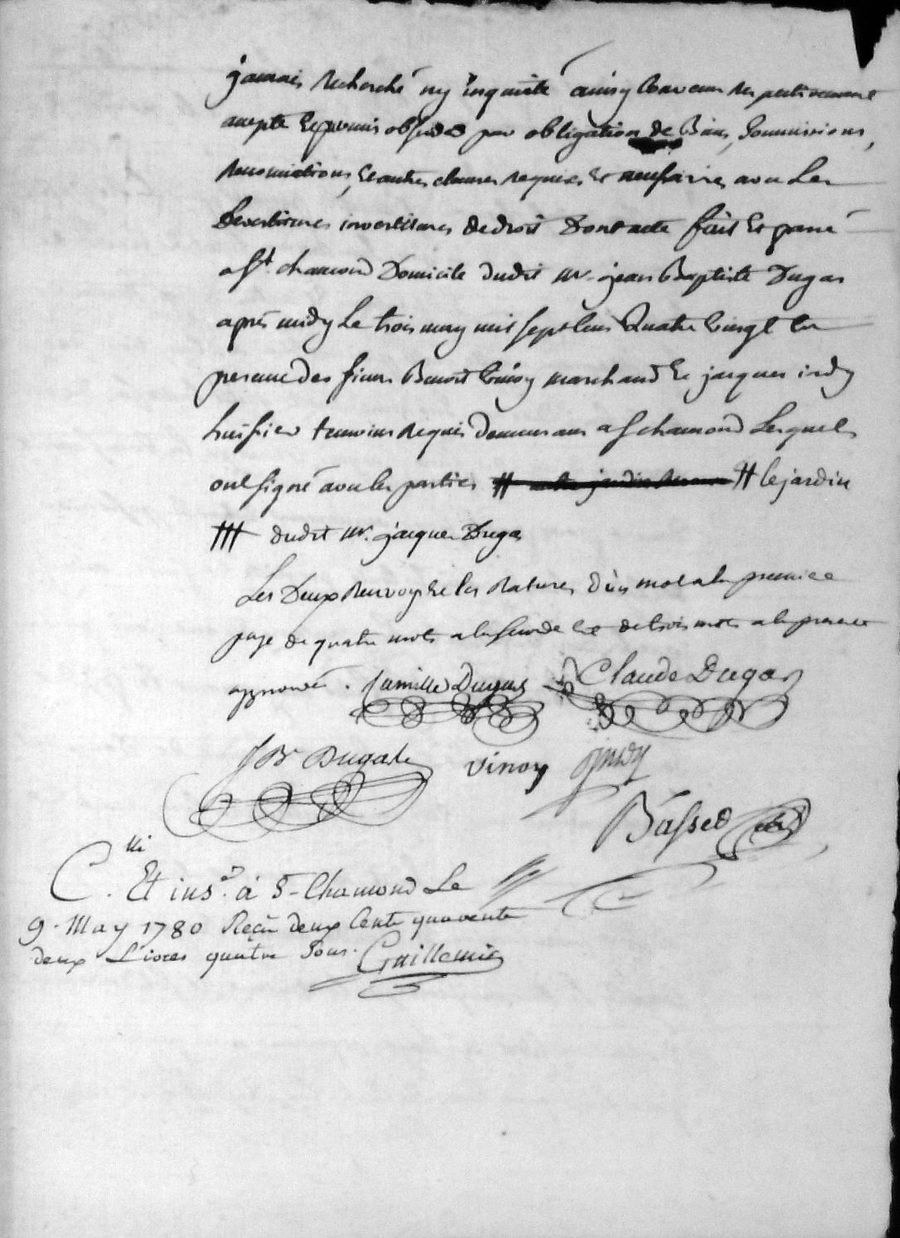 jamais recherché ny inquieté ainsy convenu respectivement
accepté et promis observer par obligation de Biens, soumissions,
renonciations, et autres clauses requises et necessaires avec les
Devestitures investitures de droit Dont acte fait et passé
a St chamond Domicile dudit mr. jean Baptiste Dugas
après midy Le trois may mil sept cens Quatre vingt en
presence des sieurs Benoit vinoy marchand et jacques
huissier temoins requis demeurans a St chamond Lesquels
ont signé avec les parties # le jardin
dudit mr. jacques Dugas
Les Deux Renvoys et les Ratures d'un mot a la premiere
page de quatre mots a la seconde et de trois mots a la presente
approuvés. Camille Dugas Claude Dugas
JBte Dugas vinoy
Basset
C.lli Et ins.é à St Chamond Le
9. May 1780 Reçu deux Cents quarente
deux Livres quatre Sous. Guillemin